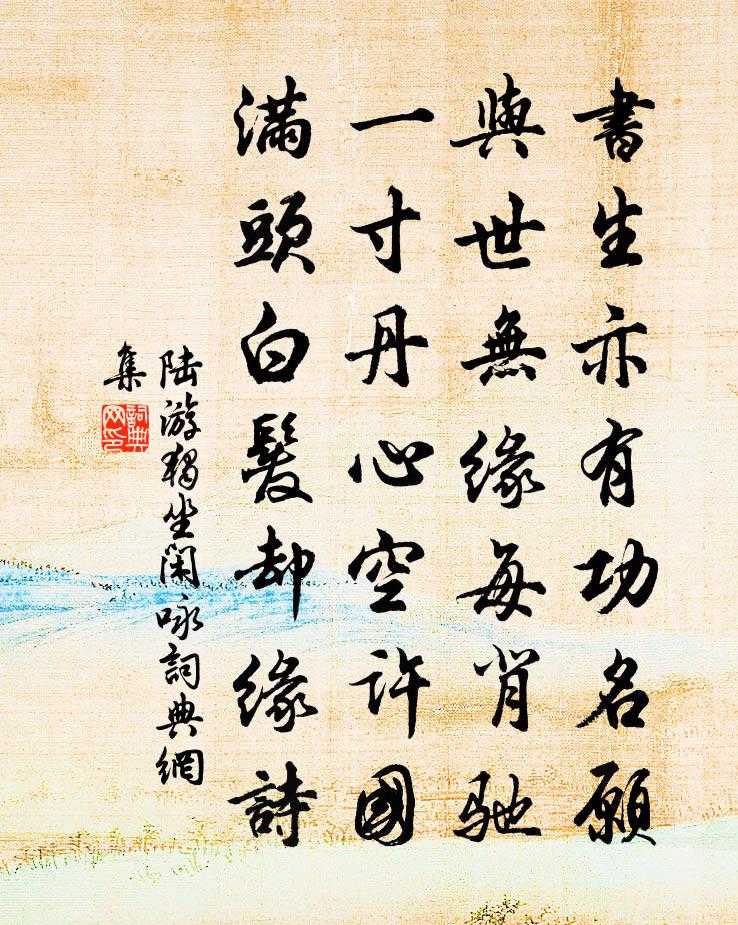 書生亦有功名願
與世無緣每背馳
一寸丹心空許國
滿頭白髮却緣詩
陸游獨坐閑咏詞典網
集
詞典
网印